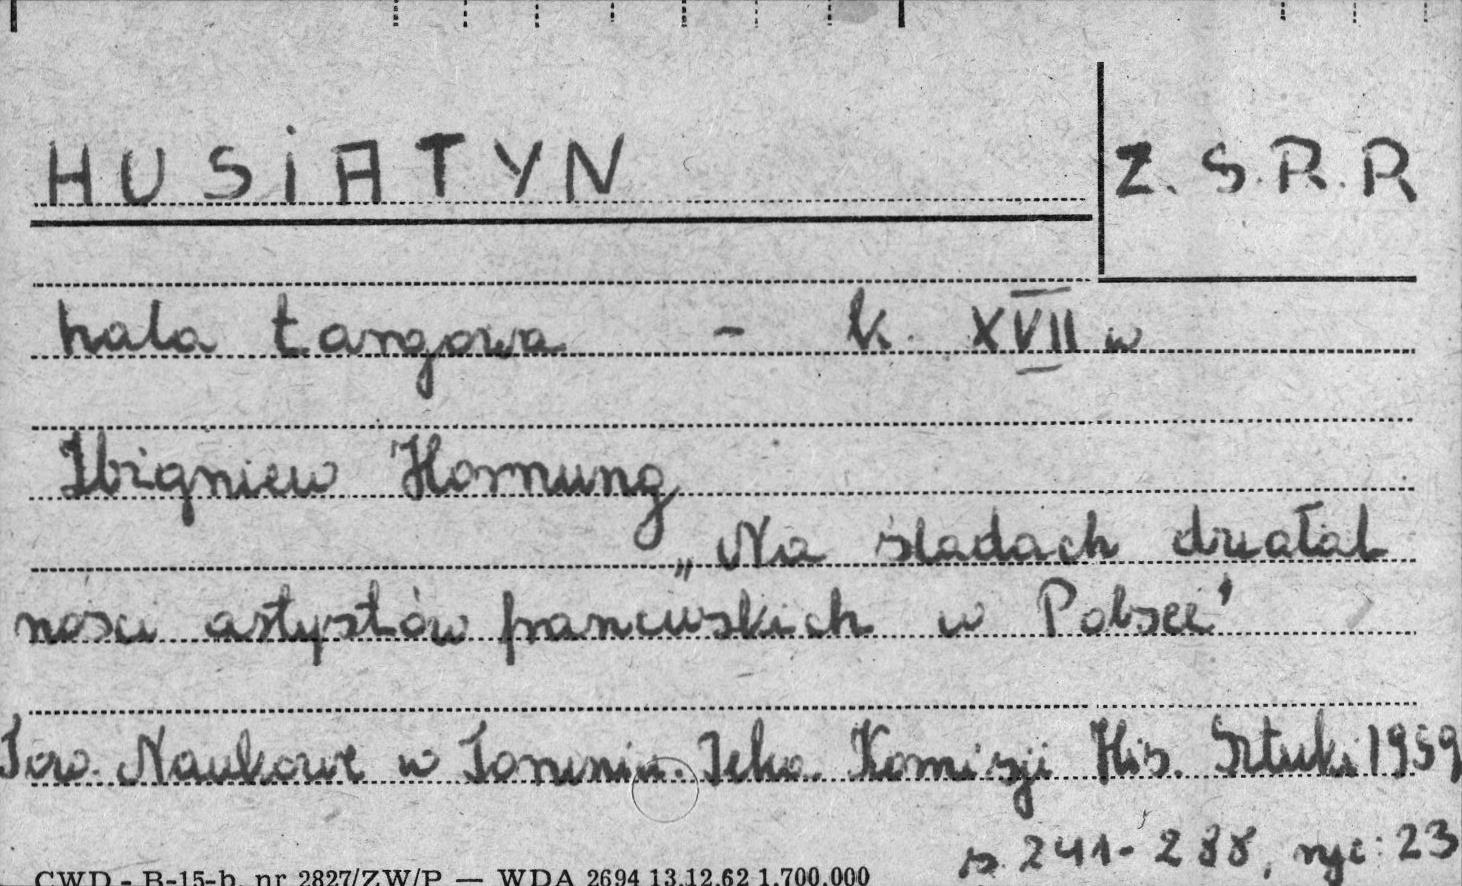 HUSIATYN
Z.S.R.R
hala targowa - k. XVII w
Zbigniew Hornung
„Na śladach działal
ności artystów francuskich w Polsce"
Tow. Naukowe w Toruniu. Teka. Komisji His. Sztuki 1959
s. 241-288, ryc: 23
CWD - B-15-b. nr 2827/ZW/P — WDA 2694 13.12.62 1.700.000